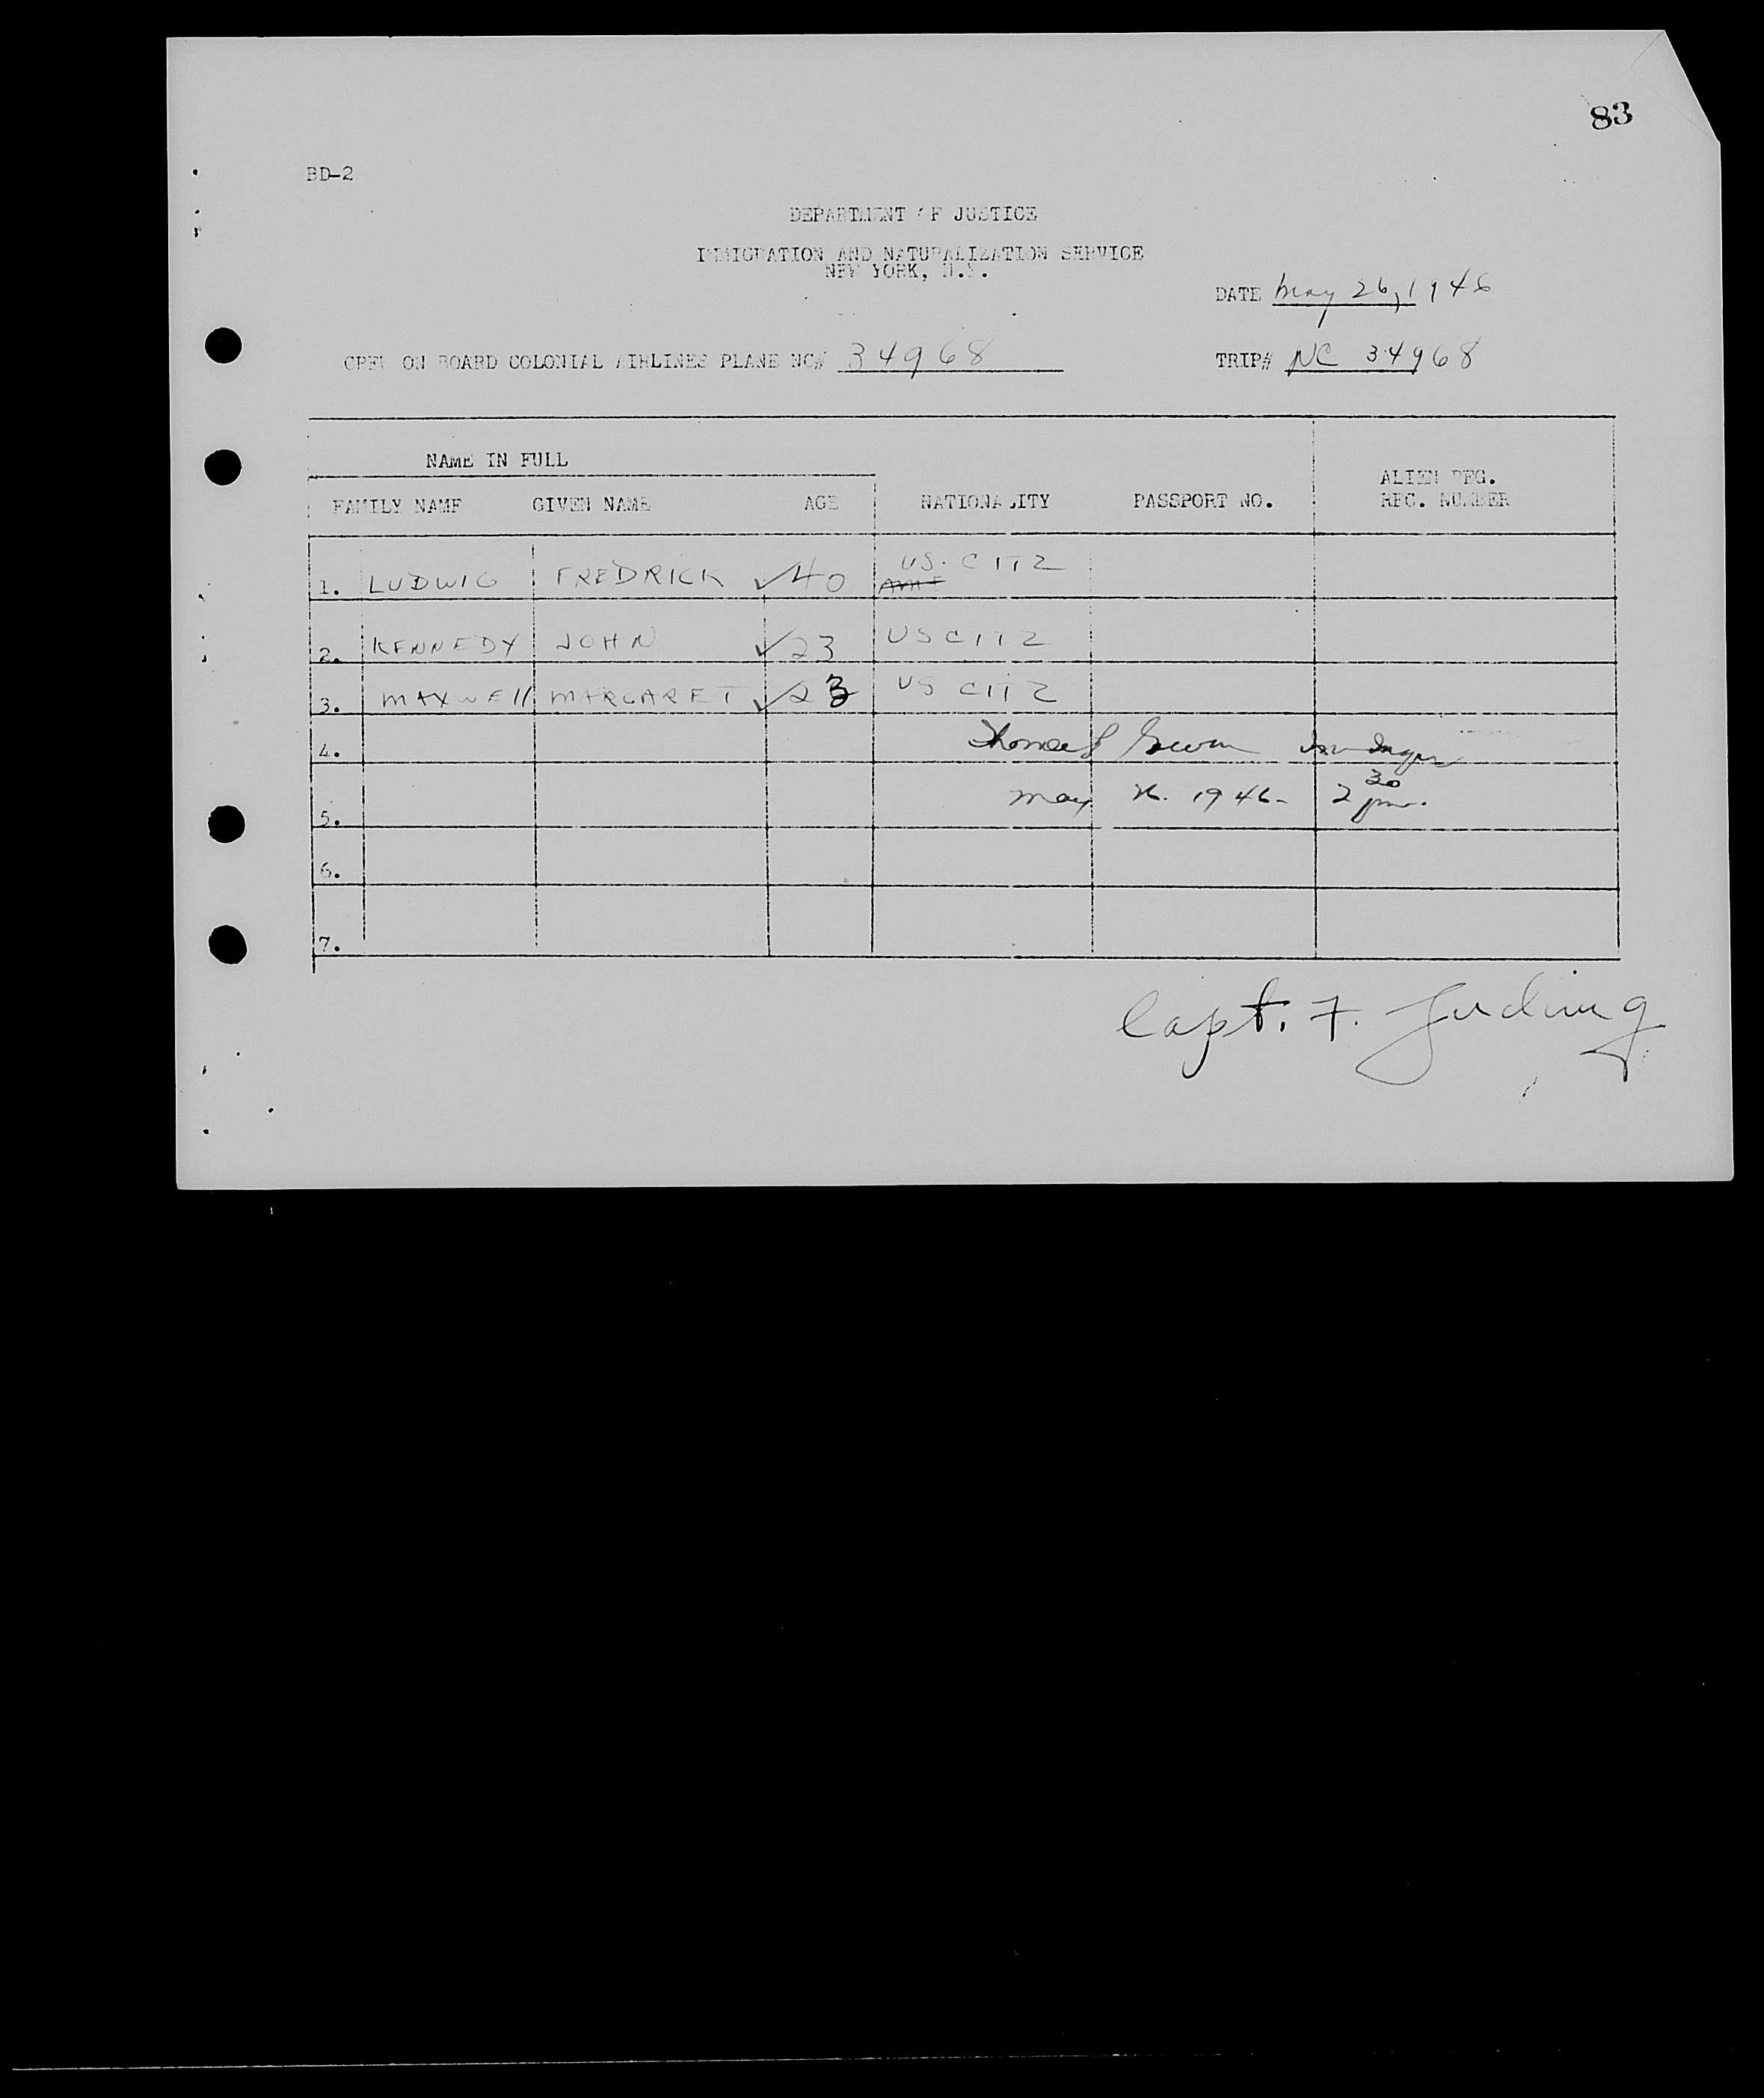 83
BD-2
DEPARTMENT OF JUSTICE
IMMIGRATION AND NATURALIZATION SERVICE
NEW YORK, N.Y.
DATE May 26, 1946
CREW ON BOARD COLONIAL AIRLINES PLANE NC# 34968 TRIP# NC 34968
NAME IN FULL
FAMILY NAME GIVEN NAME AGE NATIONALITY PASSPORT NO. ALIEN REG. REC. NUMBER
1. LUDWIG FREDRICK ✓ 40 US. CITZ
2. KENNEDY JOHN ✓ 23 US CITZ
3. MAXWEll MARGARET ✓ 23 US CITZ
4. Thomas
5. May 26. 1946- 2 30 pm.
6.
7.
Capt. F. Ludwig